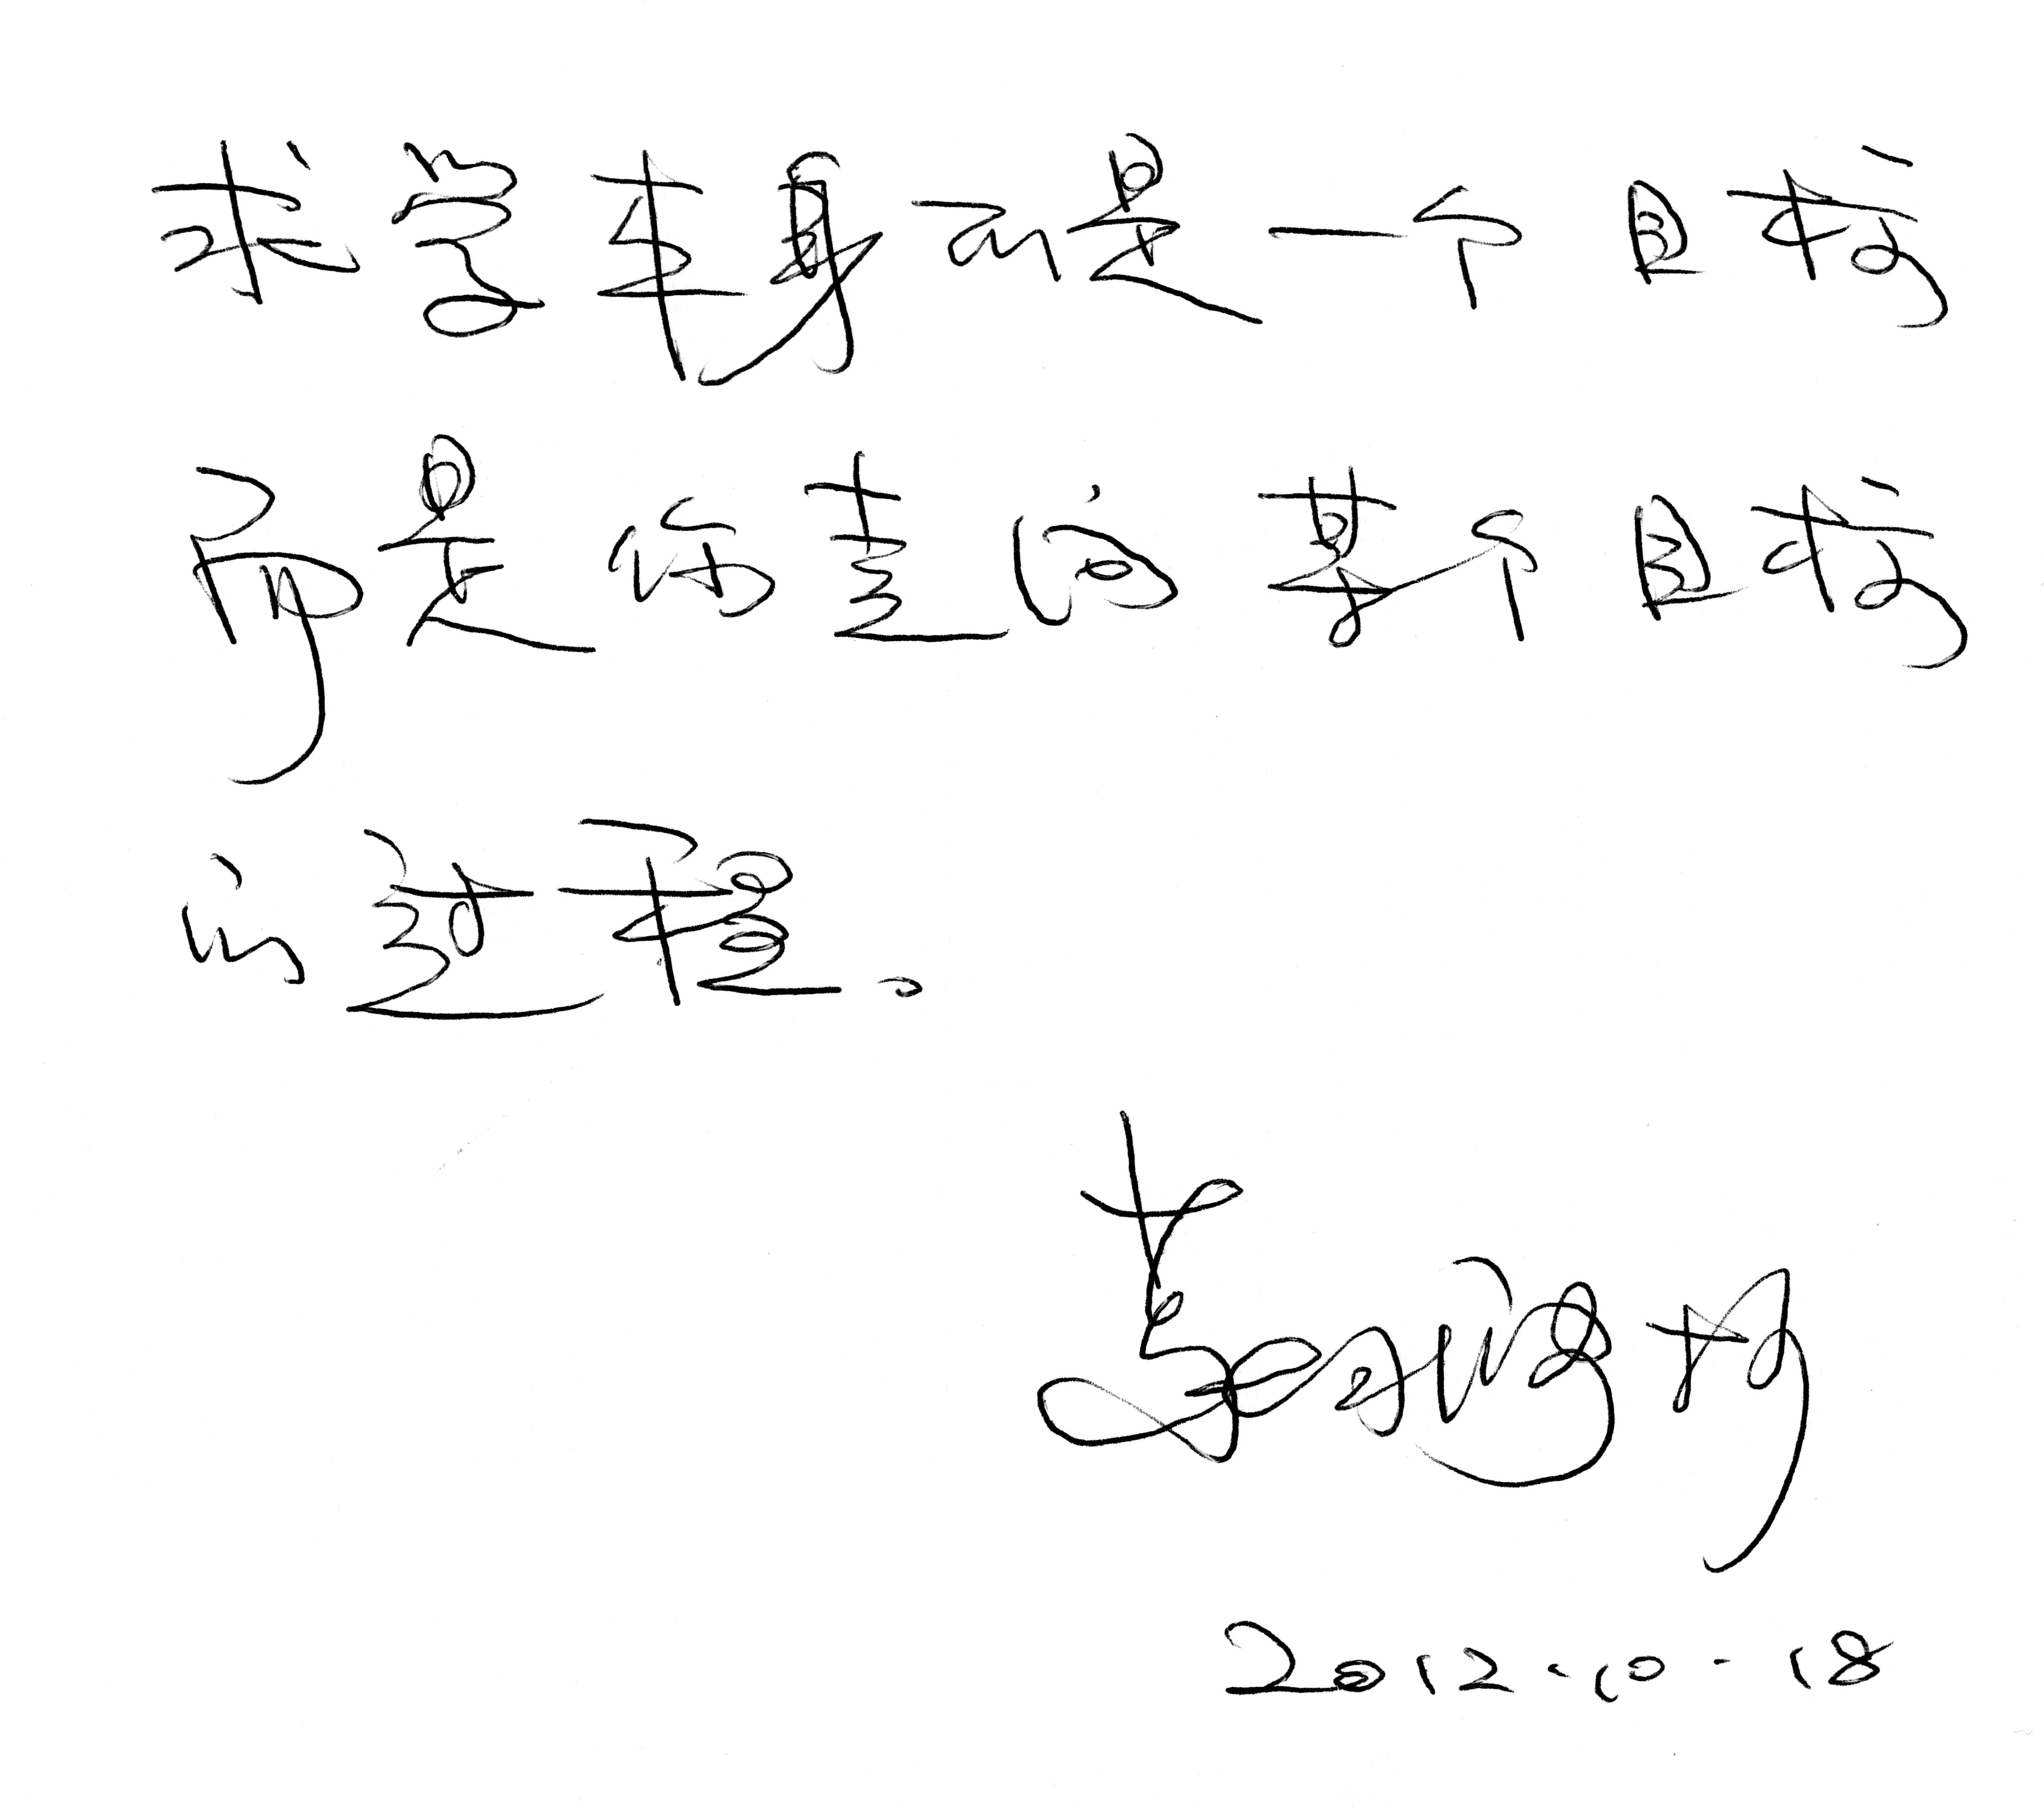 求学本身不是一个目标
而是你走向某个目标
的过程。
2012.10.18